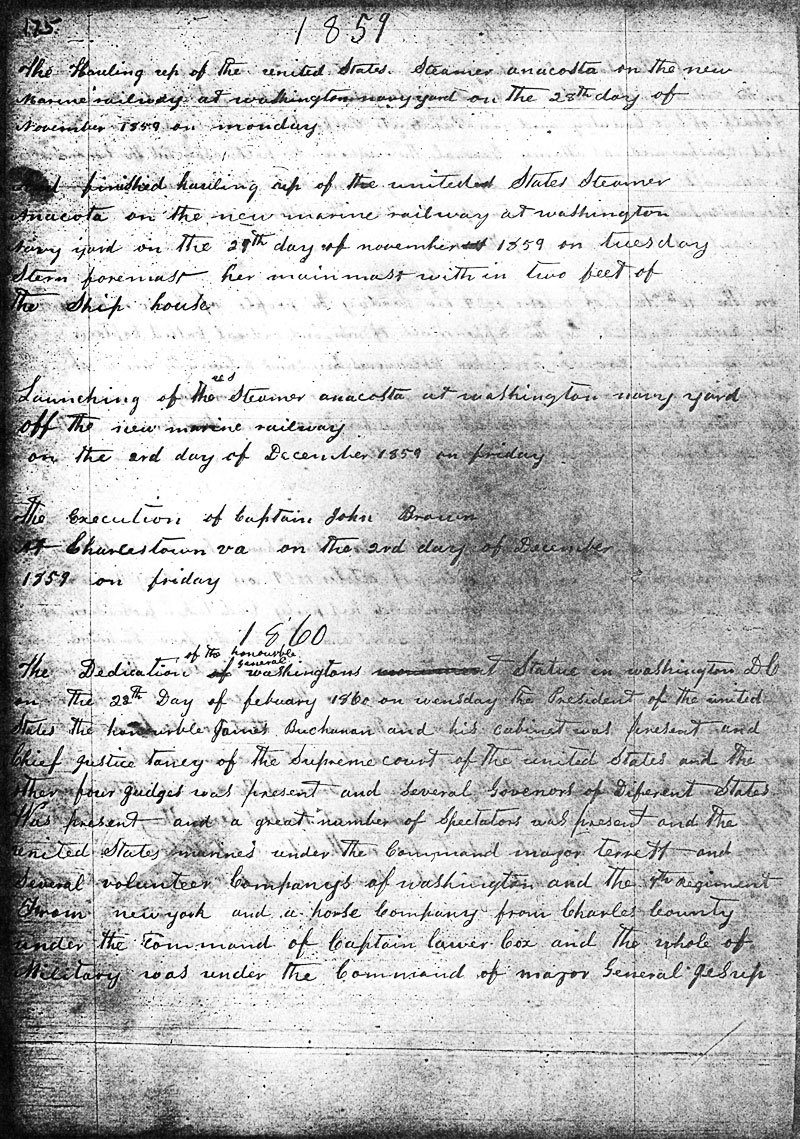 175
1859
The Hauling up of the united States. Steamer anacosta on the new
marine railway at washington navy yard on the 28th day of
November 1859 on monday
finished hauling up of the united States Steamer
Anacota on the new marine railway at washington
Navy yard on the 29th day of november 1859 on tuesday
Stern foremast her mainmast with in two feet of
the Ship house
Launching of the us Steamer anacosta at washington navy yard
off the new marine railway
on the 2rd day of December 1859 on friday
The Execution of Captain John Brown
At Charlestown va on the 2rd day of December
1859 on friday
1860
of the honourble
general
The Dedication of washingtons t Statue in washington DC
on the 22th Day of febuary 1860 on wensday the President of the united
States the honourble James Buchanan and his cabinet was present and
Chief justice taney of the Supreme court of the united States and the
other four judges was present and Several Govenors of Diferent States
Was present and a great number of Spectators was present and the
united States marines under the Command major terrett and
Several volunteer Companys of washington and the 7th Regiment
From new york and a horse Company from Charles County
under the Command of Captain Cox and the whole of
Military was under the Command of major General Jesup